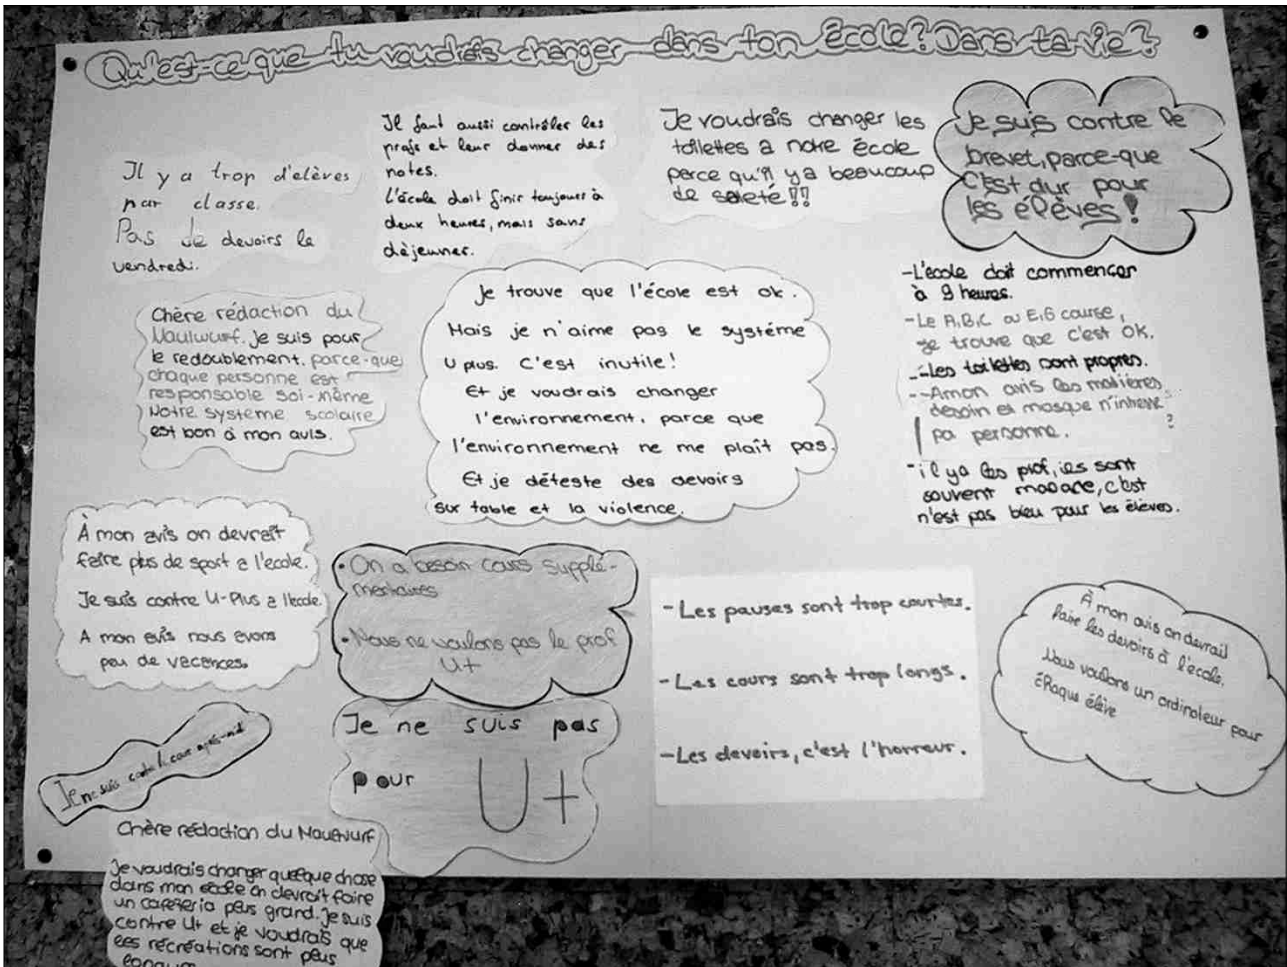 Qu'est-ce que tu voudrais changer dans ton école? Dans ta vie?
Il y a trop d'elèves
par classe.
Pas de devoirs le
vendredi.
Il faut aussi contrôler les
profs et leur donner des
notes.
L'école doit finir toujours à
deux heures, mais sans
dèjeuner.
Je voudrais changer les
toilettes a notre école
perce qu'il y a beaucoup
de saleté!!
Je suis contre le
brevet, parce-que
c'est dur pour
les élèves!
Chère rédaction du
Maulwurf. Je suis pour
le redoublement. parce-que
chaque personne est
responsable soi-même
Notre système scolaire
est bon à mon avis.
Je trouve que l'école est ok.
Mais je n'aime pas le systéme
U plus. C'est inutile!
Et je voudrais changer
l'environnement. parce que
l'environnement ne me plaît pas.
Et je déteste des devoirs
sur table et la violence.
-L'école doit commencer
à 9 heures.
-Le A,B,C ou E,G course,
je trouve que c'est OK.
-Les toilettes sont propres.
-Amon avis les matières
dessin et musique
pa personne.
-il ya les prof, ies sont
souvent malade, c'est
n'est pas bien pour les élèves.
À mon avis on devrait
faire plus de sport a l'ecole.
Je suis contre U-Plus a l'ecole.
A mon avis nous avons
peu de vacences.
• On a besoin cours supplé-
mentaires
• Nous ne voulons pas le prof
U+
-Les pauses sont trop courtes.
-Les cours sont trop longs.
-Les devoirs, c'est l'horreur.
À mon avis on devrait
faire les devoirs à l'école.
Nous voulons un ordinateur pour
chaque élève
Je ne suis pas
pour U+
Chère rédaction du Maulwurf
Je voudrais changer quelque chose
dans mon école on devrait faire
un cafeteria plus grand. Je suis
contre U+ et je voudrais que
les récréations sont plus